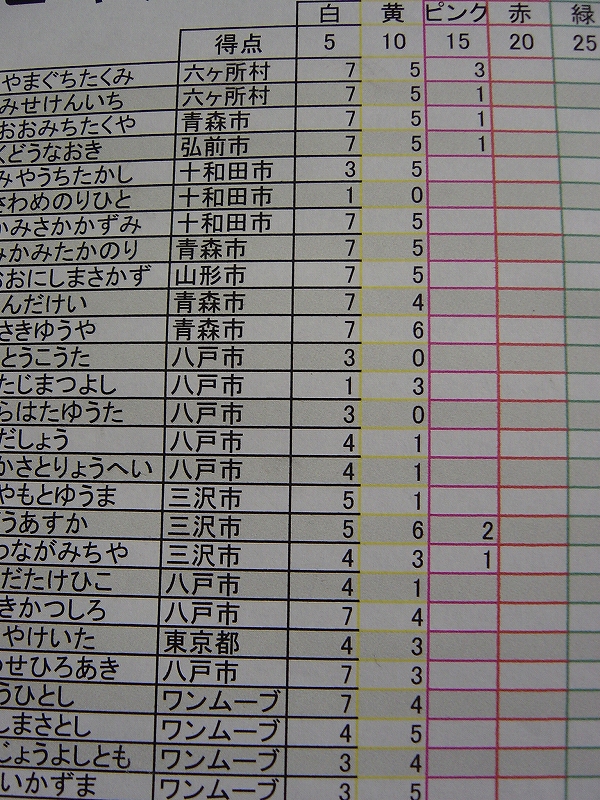 白 黄 ピンク 赤 緑
得点 5 10 15 20 25
やまぐちたくみ 六ヶ所村 7 5 3
みせけんいち 六ヶ所村 7 5 1
おおみちたくや 青森市 7 5 1
くどうなおき 弘前市 7 5 1
みやうちたかし 十和田市 3 5
さわめのりひと 十和田市 1 0
かみさかかずみ 十和田市 7 5
みかみたかのり 青森市 7 5
おおにしまさかず 山形市 7 5
んだけい 青森市 7 4
さきゆうや 青森市 7 6
とうこうた 八戸市 3 0
たじまつよし 八戸市 1 3
らはたゆうた 八戸市 3 0
だしょう 八戸市 4 1
かさとりょうへい 八戸市 4 1
やもとゆうま 三沢市 5 1
うあすか 三沢市 5 6 2
つながみちや 三沢市 4 3 1
だたけひこ 八戸市 4 1
きかつしろ 八戸市 7 4
やけいた 東京都 4 3
せひろあき 八戸市 7 3
うひとし ワンムーブ 7 4
しまさとし ワンムーブ 4 5
じょうよしとも ワンムーブ 3 4
いかずま ワンムーブ 3 5